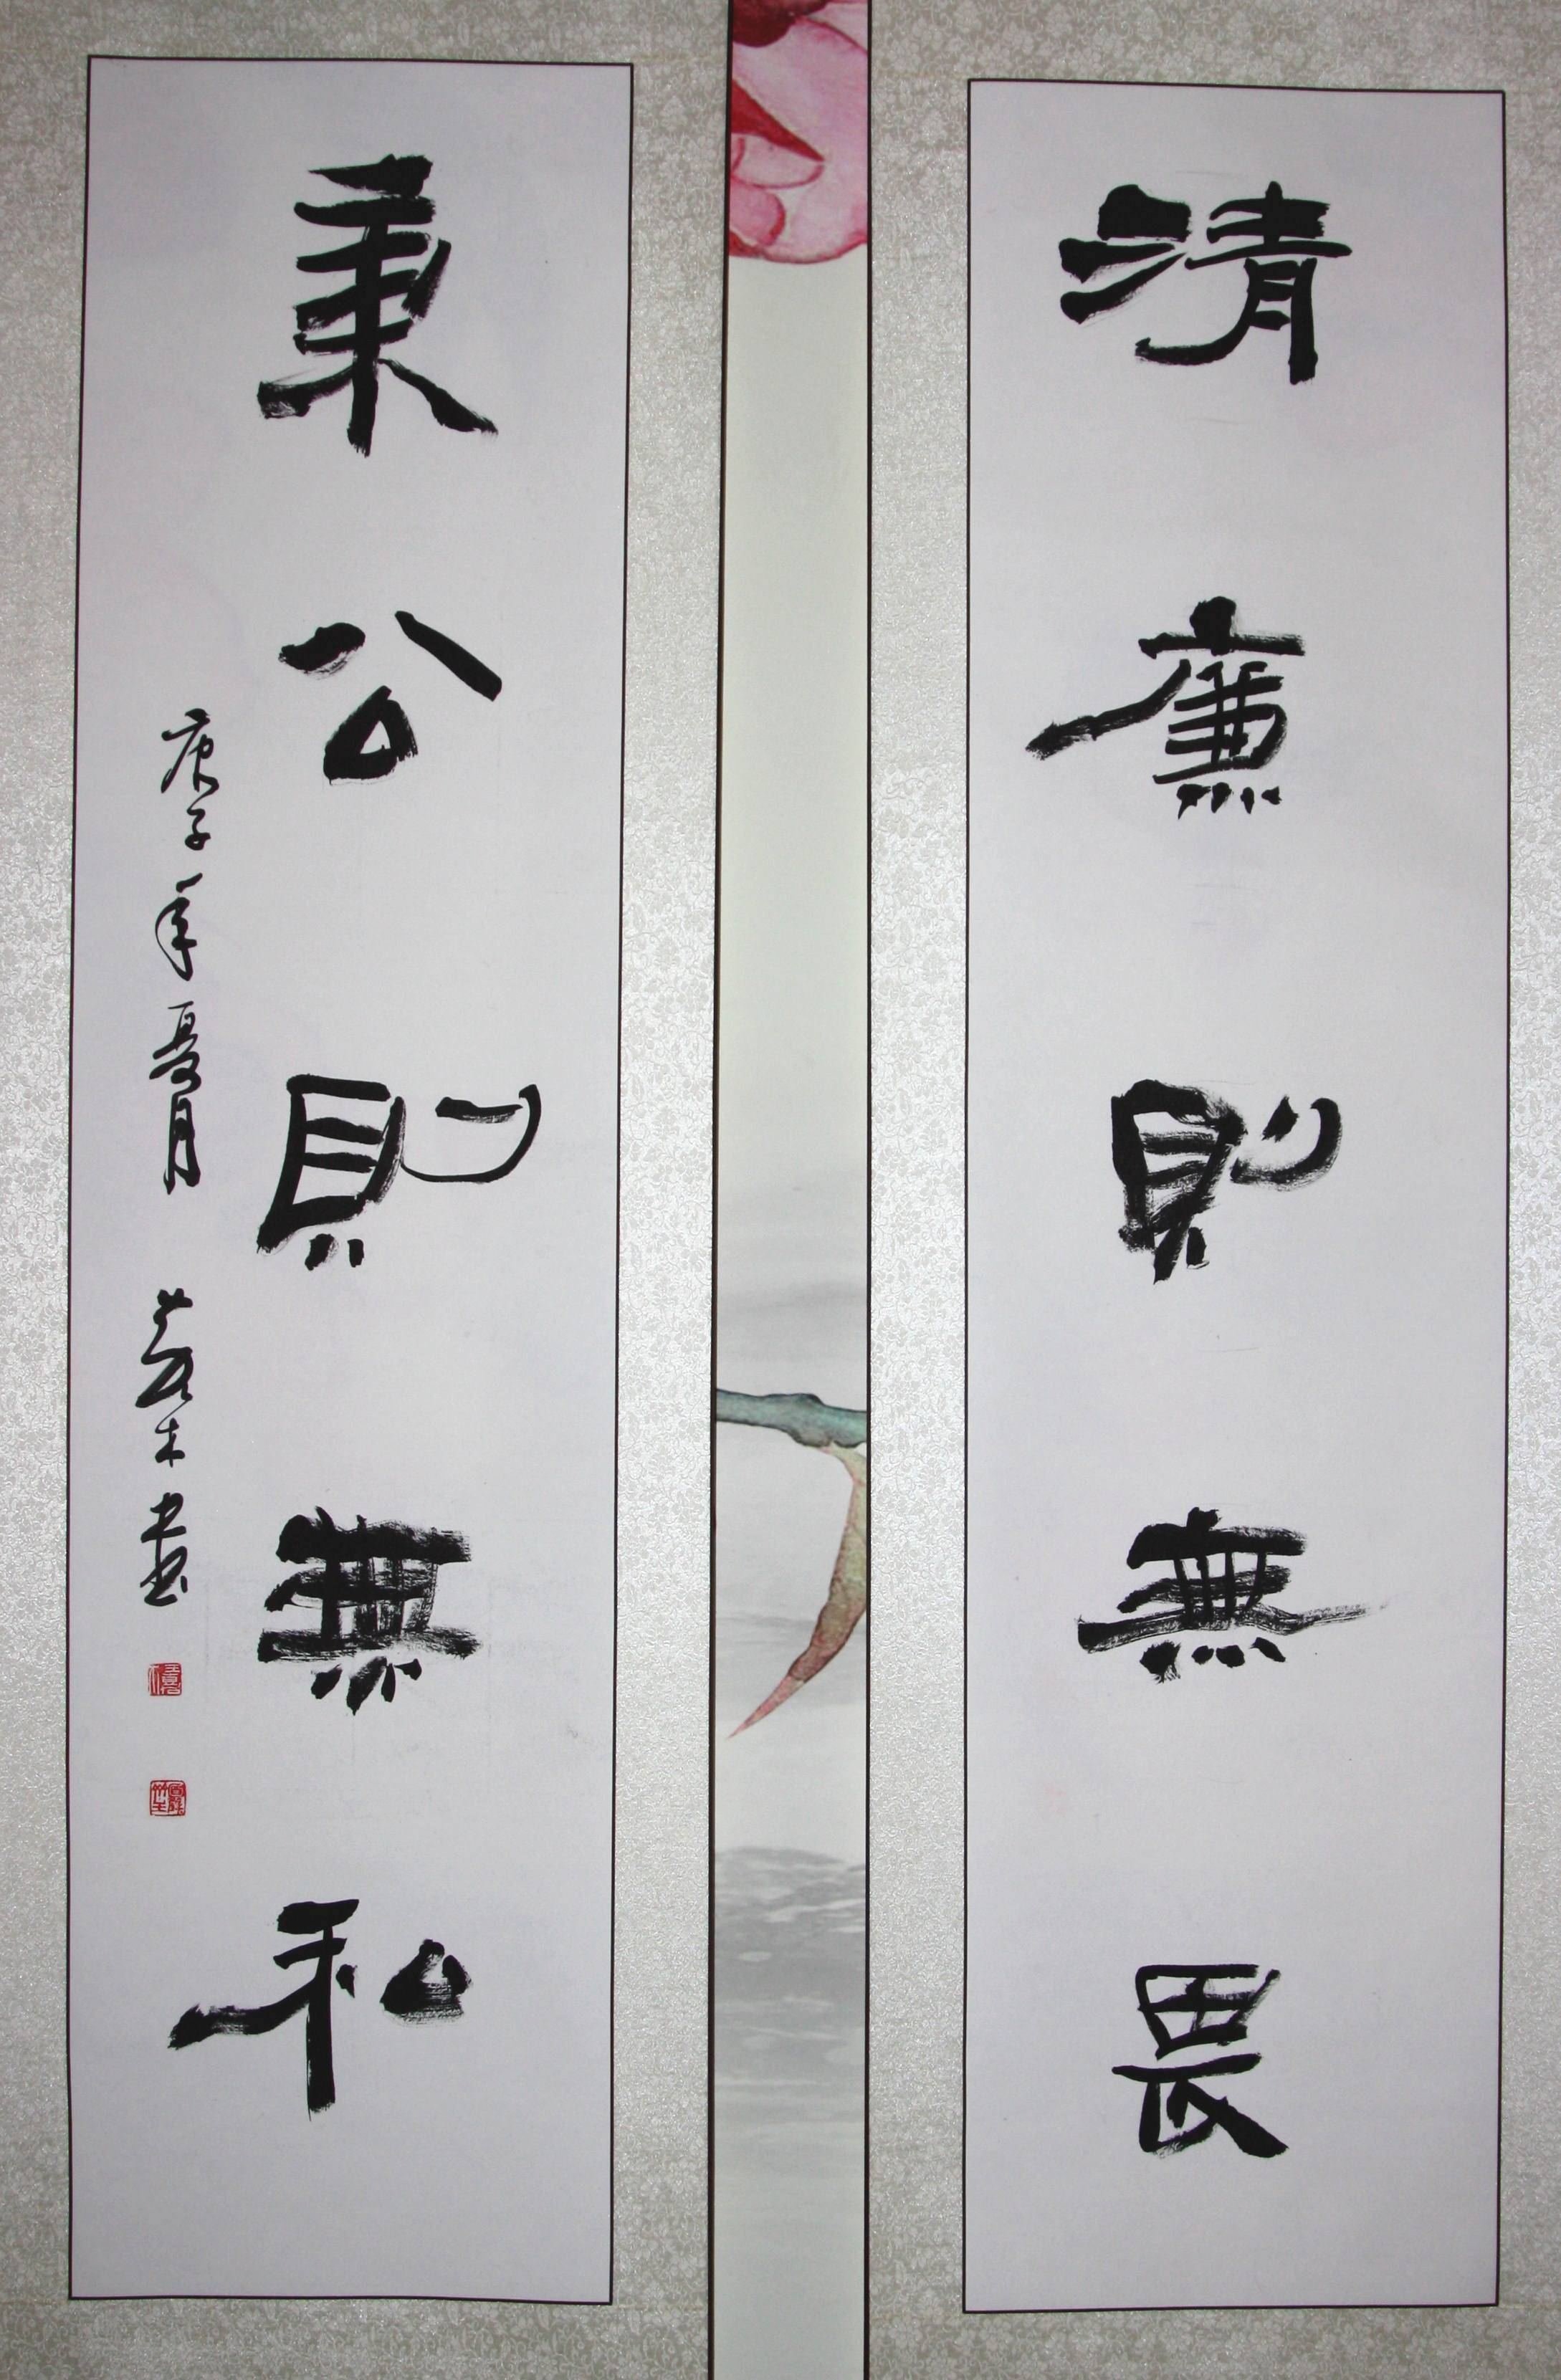 清廉則無畏
秉公則無私
庚子年夏月 木書